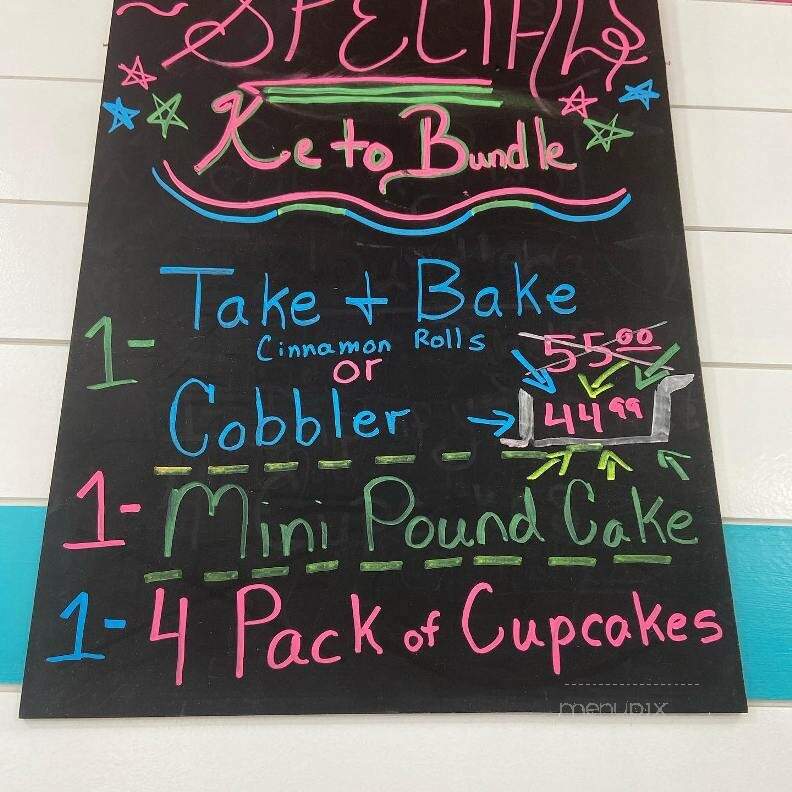 SPECIALS
Keto Bundle
1- Take + Bake
Cinnamon Rolls
or
55⁰⁰
Cobbler → 44⁹⁹
1- Mini Pound Cake
1- 4 Pack of Cupcakes
menupix